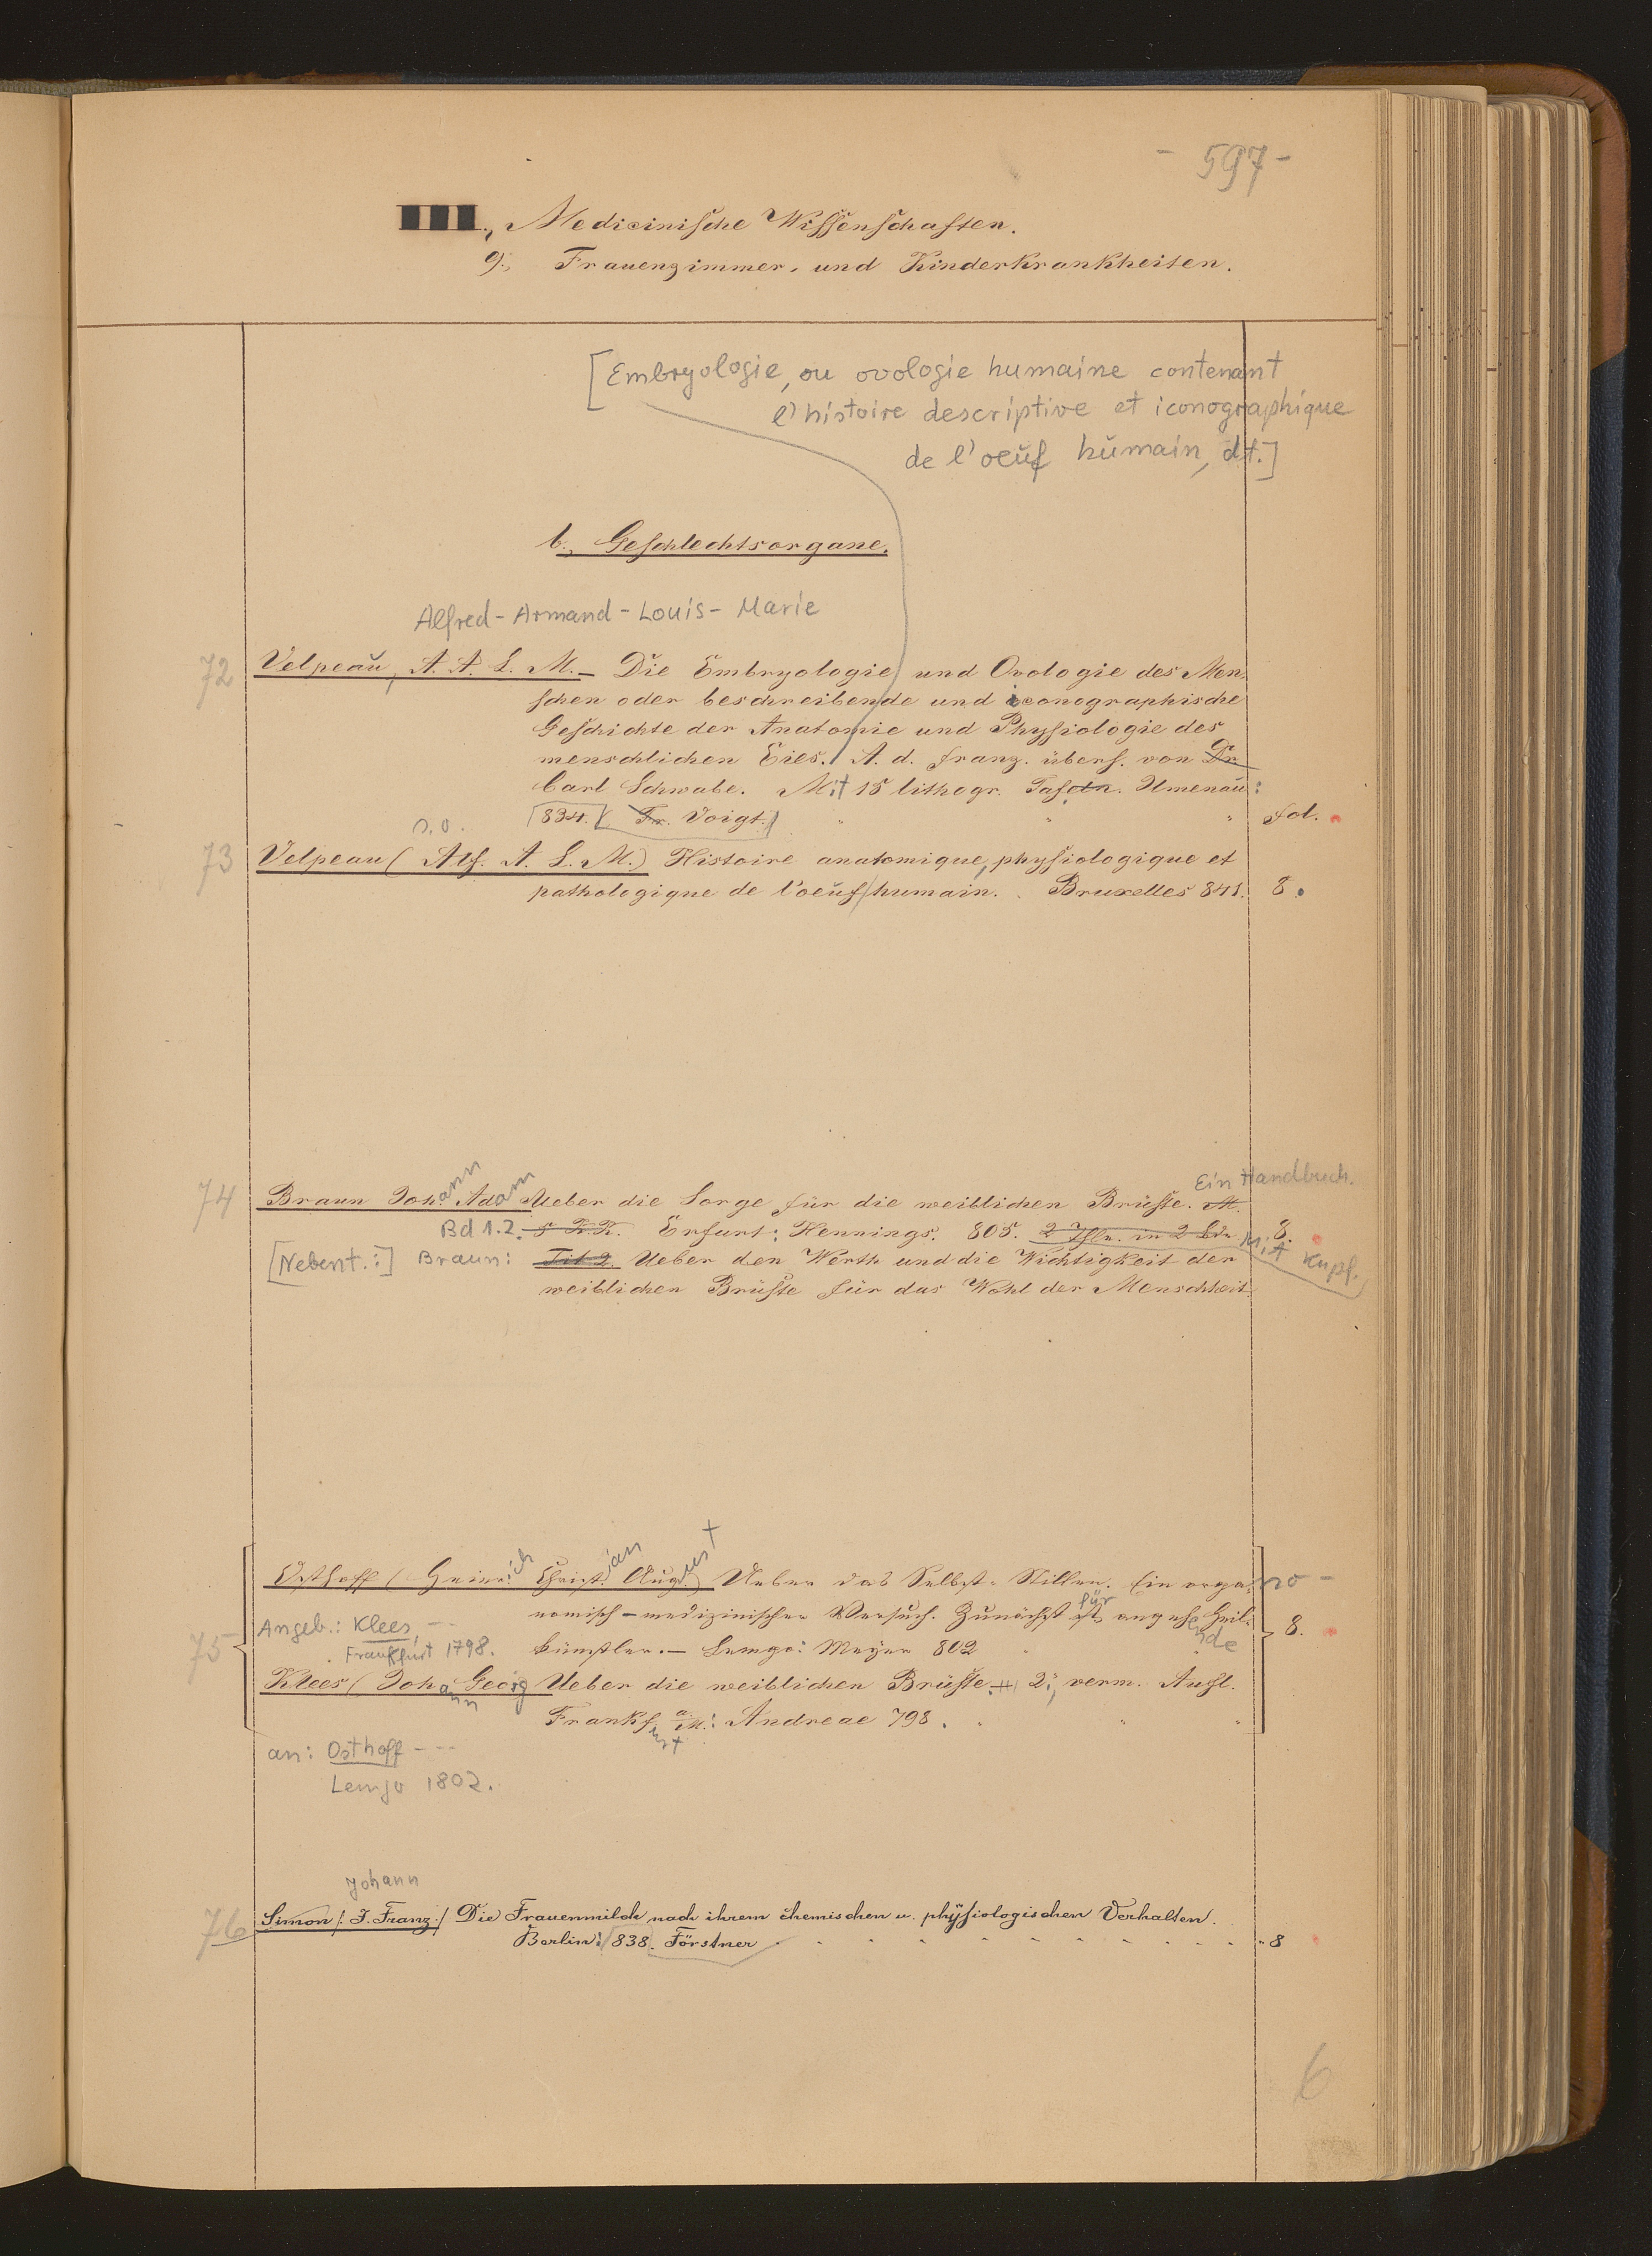 - 597 -
III., Medicinische Wissenschaften.
9., Frauenzimmer- und Kinderkrankheiten.
[Embryologie, ou ovologie humaine contenant
l'histoire descriptive et iconographique
de l'oeuf humain, dt.]
b., Geschlechtsorgane.
Alfred-Armand-Louis-Marie
72 Velpeau, A. A. L. M. – Die Embryologie und Ovologie des Men-
schen oder beschreibende und iconographische
Geschichte der Anatomie und Physiologie des
menschlichen Eies. A. d. franz. übers. von Dr
Carl Schwabe. Mit 15 lithogr. Tafeln. Ilmenau:
834. Fr. Voigt. " " " fol.
s. o.
73 Velpeau (Alf. A. L. M.) Histoire anatomique, physiologique et
pathologique de l'oeuf humain. Bruxelles 841. 8.
Ein Handbuch.
74 Braun Johann Adam Ueber die Sorge für die weiblichen Brüste. M.
Bd 1.2. 5 K.K. Erfurt: Hennings. 805. 2 Thle. in 2 Bdn 8.
Mit Kupf.
[Nebent.:] Braun: Tit 2. Ueber den Werth und die Wichtigkeit der
weiblichen Brüste für das Wohl der Menschheit.
Osthoff (Heinrich Christian August Ueber das Selbst-Stillen. Ein orga- no -
nomisch-medizinischer Versuch. Zunächst für angehende Heil-
75 Angeb.: Klees, --- künstler. – Lemgo: Meyer 802 " 8.
Frankfurt 1798.
Klees (Johann Georg Ueber die weiblichen Brüste. 2., verm. Aufl.
Frankfurt a. M.: Andreae 798. " " "
an: Osthoff ---
Lemgo 1802.
Johann
76 Simon /: J. Franz :/ Die Frauenmilch nach ihrem chemischen u. physiologischen Verhalten.
Berlin: 838. Förstner . . . . . . . . . . 8
6